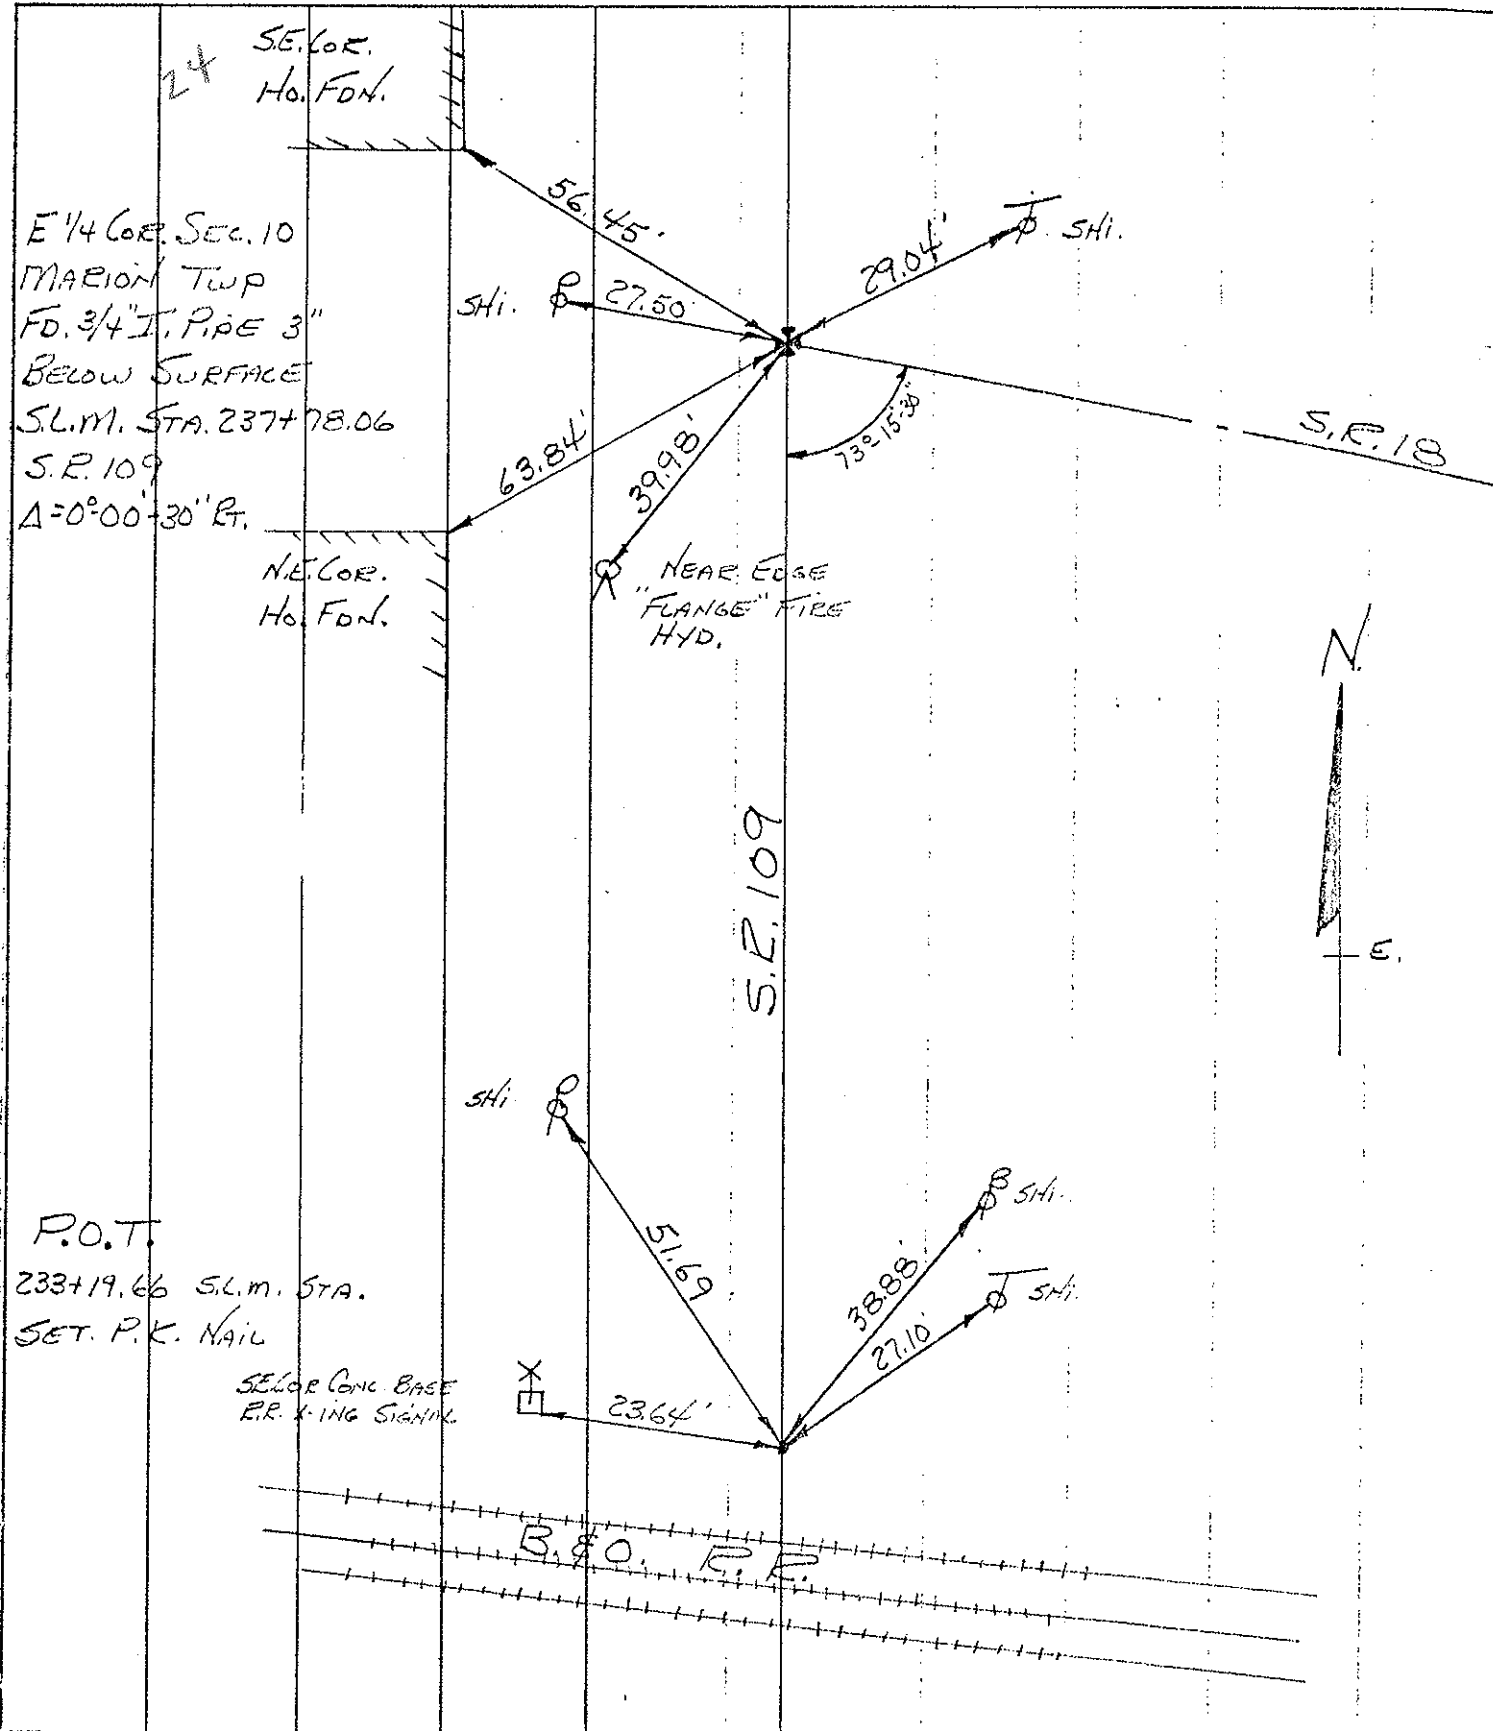 24
S.E. COR.
HO. FDN.
56.45'
29.04'
SHI.
E 1/4 COR. SEC. 10
MARION TWP
FD. 3/4" I. PIPE 3"
BELOW SURFACE
S.L.M. STA. 237+78.06
S.R. 109
Δ=0°-00'-30" RT.
SHI.
27.50
63.84'
39.98'
73°-15'-30"
S.R. 18
N.E. COR.
HO. FDN.
NEAR EDGE
"FLANGE" FIRE
HYD.
N.
E.
S.R. 109
SHI
51.69
38.88'
SHI.
27.10'
SHI.
P.O.T.
233+19.66 S.L.M. STA.
SET. P.K. NAIL
S.E. COR CONC. BASE
R.R. X-ING SIGNAL
23.64'
B. & O. R.R.